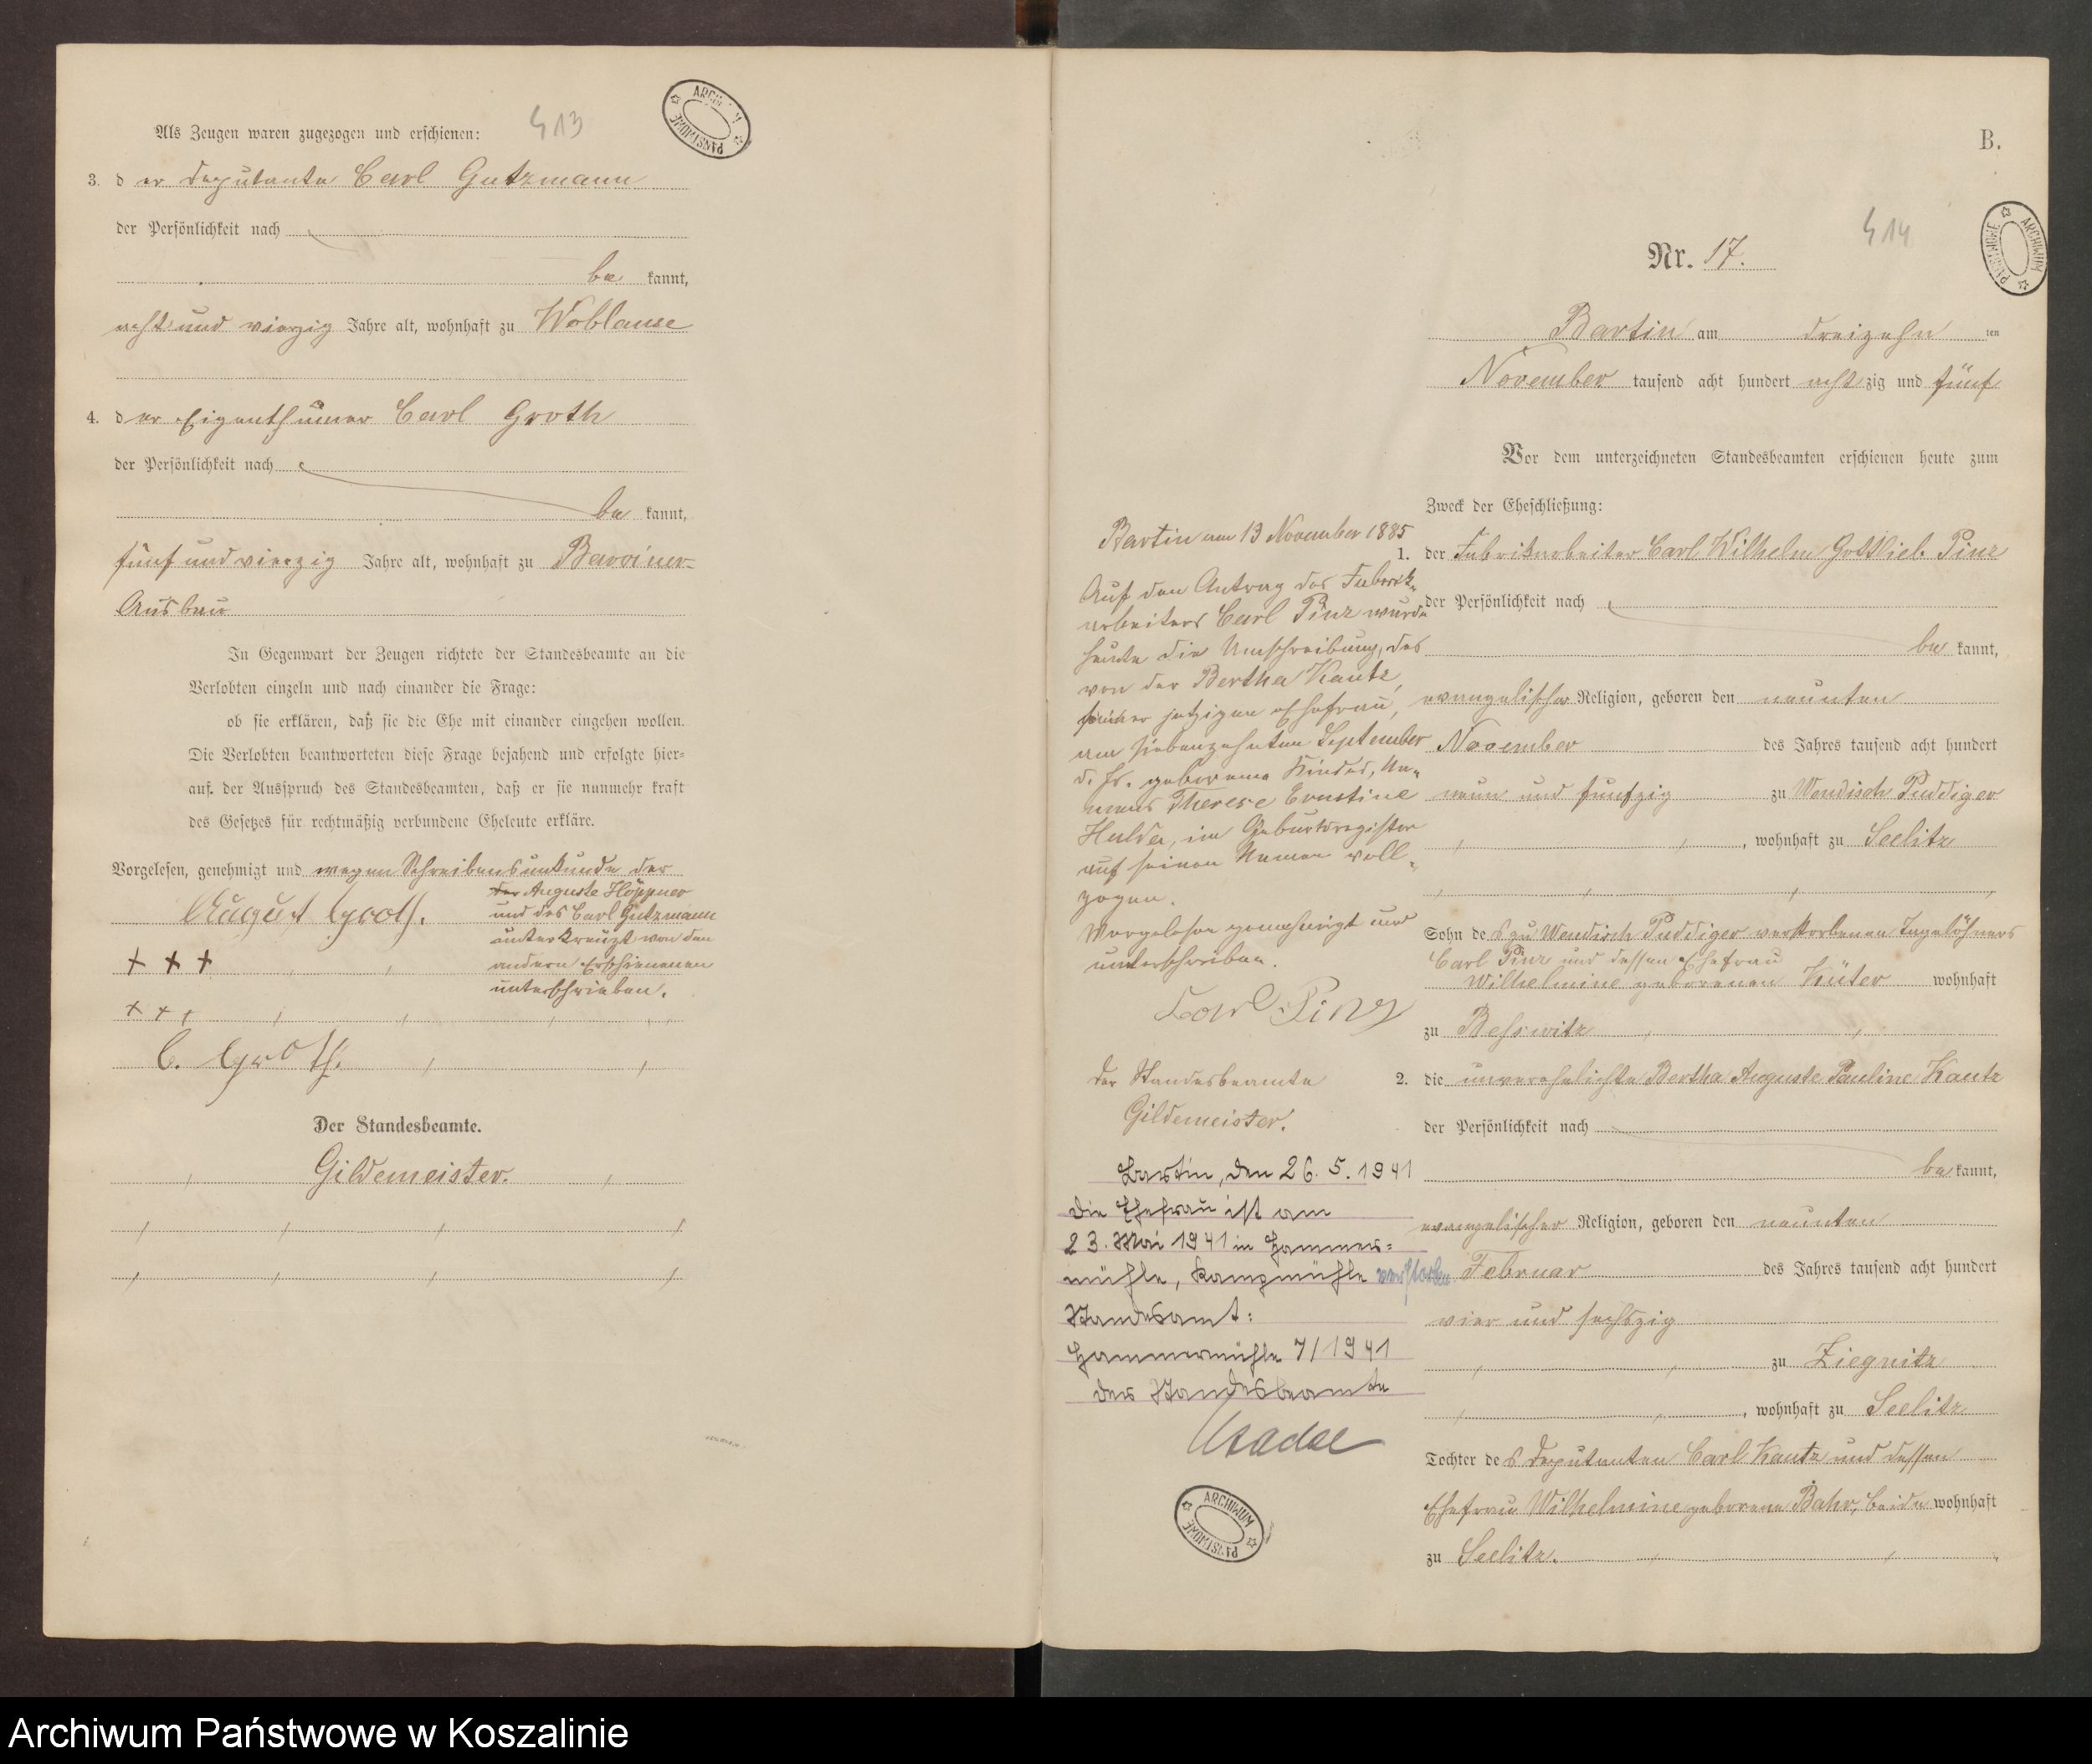 413
ARCHIWUM PAŃSTWOWE
Als Zeugen waren zugezogen und erschienen:
3. d er Deputante Carl Gutzmann
der Persönlichkeit nach
be kannt,
acht und vierzig Jahre alt, wohnhaft zu Woblanse
4. d er Eigenthümer Carl Groth
der Persönlichkeit nach
be kannt,
fünf und vierzig Jahre alt, wohnhaft zu Barviner-
Ausbau
In Gegenwart der Zeugen richtete der Standesbeamte an die
Verlobten einzeln und nach einander die Frage:
ob sie erklären, daß sie die Ehe mit einander eingehen wollen.
Die Verlobten beantworteten diese Frage bejahend und erfolgte hier-
auf der Ausspruch des Standesbeamten, daß er sie nunmehr kraft
des Gesetzes für rechtmäßig verbundene Eheleute erkläre.
Vorgelesen, genehmigt und wegen Schreibensunkunde der
der Auguste Höppner
und des Carl Gutzmann
unterkreuzt von den
andern Erschienenen
unterschrieben.
August Groth.
+ + +
+ + +
C. Groth.
Der Standesbeamte.
Gildemeister.
B.
414
ARCHIWUM PAŃSTWOWE
Nr. 17.
Bartin am dreizehn ten
November tausend acht hundert acht zig und fünf
Vor dem unterzeichneten Standesbeamten erschienen heute zum
Zweck der Eheschließung:
1. der Fabrikarbeiter Carl Wilhelm Gottlieb Pinz
der Persönlichkeit nach
be kannt,
evangelischer Religion, geboren den neunten
November des Jahres tausend acht hundert
neun und fünfzig zu Wendisch Puddiger
, wohnhaft zu Seelitz
Sohn de s zu Wendisch Puddiger verstorbenen Tagelöhners
Carl Pinz und dessen Ehefrau
Wilhelmine geborenen Küter wohnhaft
zu Besswitz
2. die unverehelichte Bertha Auguste Pauline Kautz
der Persönlichkeit nach
be kannt,
evangelischer Religion, geboren den neunten
Februar des Jahres tausend acht hundert
vier und sechszig
zu Ziegnitz
, wohnhaft zu Seelitz
Tochter de s Deputanten Carl Kautz und dessen
Ehefrau Wilhelmine geborene Bahr, beide wohnhaft
zu Seelitz.
Bartin am 13 November 1885
Auf den Antrag des Fabrik-
arbeiters Carl Pinz wurde
heute die Umschreibung, des
von der Bertha Kautz,
seiner jetzigen Ehefrau,
am siebenzehnten September
d. Js. geborene Kindes, Na-
mens Therese Ernstine
Hulda, im Geburtsregister
auf seinen Namen voll-
zogen.
Vorgelesen genehmigt und
unterschrieben.
Carl Pinz
Der Standesbeamte
Gildemeister.
Bartin, den 26. 5. 1941
Die Ehefrau ist am
23. Mai 1941 in Hammer-
mühle, Kampmühle verstorben
Standesamt:
Hammermühle 7/1941
Der Standesbeamte
ARCHIWUM PAŃSTWOWE
Archiwum Państwowe w Koszalinie